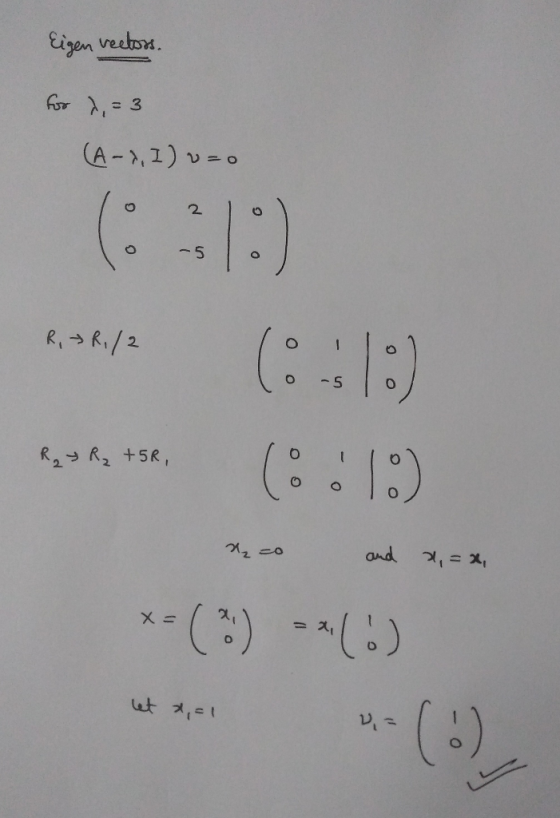 Eigen vectors.
for λ₁ = 3
(A - λ₁ I) v = 0
( 0 2 | 0 )
( 0 -5 | 0 )
R₁ → R₁/2 ( 0 1 | 0 )
( 0 -5 | 0 )
R₂ → R₂ + 5R₁ ( 0 1 | 0 )
( 0 0 | 0 )
x₂ = 0 and x₁ = x₁
X = ( x₁ ) = x₁ ( 1 )
( 0 ) ( 0 )
let x₁ = 1 v₁ = ( 1 )
( 0 )